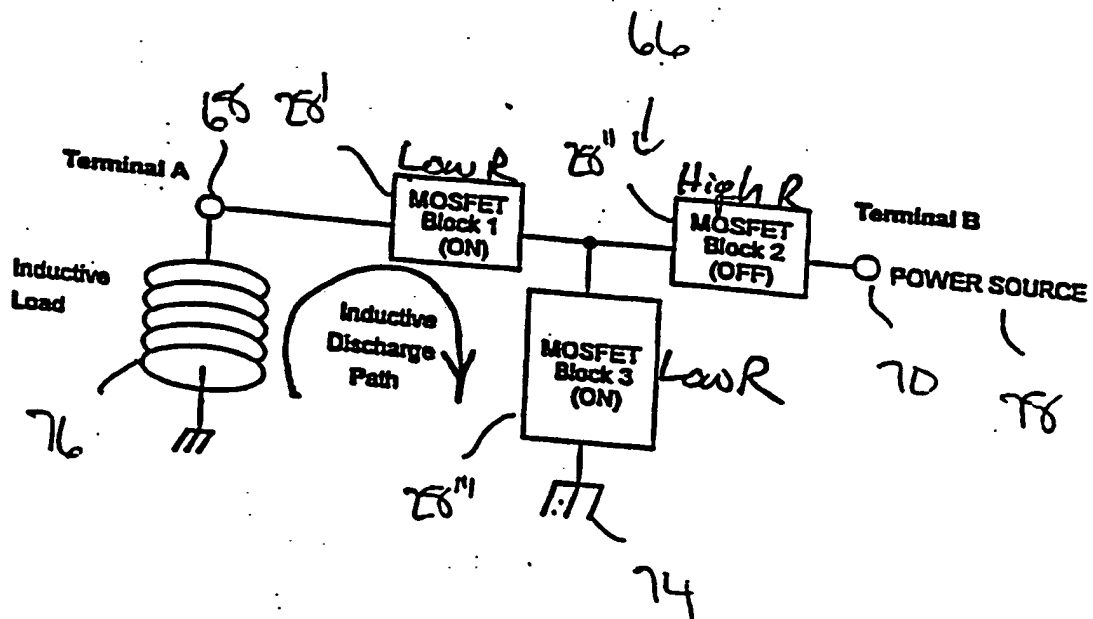 66
68 28'
Terminal A
Low R
28"
High R
MOSFET
Block 1
(ON)
MOSFET
Block 2
(OFF)
Terminal B
POWER SOURCE
Inductive
Load
Inductive
Discharge
Path
MOSFET
Block 3
(ON)
Low R
70
78
76
28'''
74